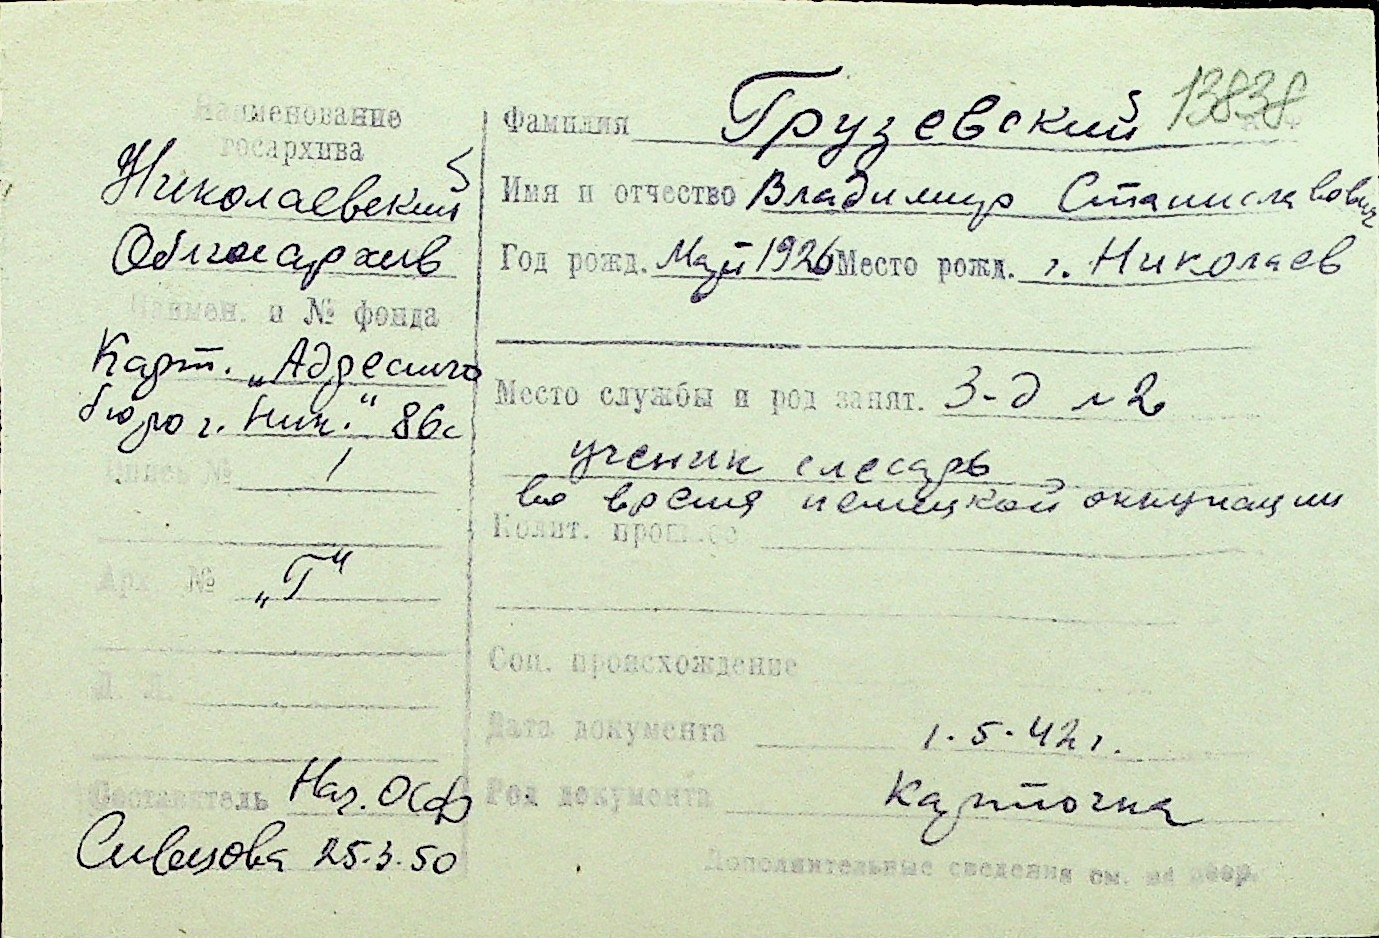 Наименование
госархива
Николаевский
Облгосархив
Наимен. и № фонда
Карт. „Адресного
бюро г. Ник." 86с
Опись № 1
Арх. № „Г"
Л. Л.
Составитель Нач. ОСФ
25.3.50
13838
Фамилия Грузевский
Имя и отчество Владимир Станиславович
Год рожд. Май 1926 Место рожд. г. Николаев
Место службы и род занят. З-д №2
ученик слесарь
во время немецкой оккупации
Полит. прошлое
Соц. происхождение
Дата документа 1.5.42 г.
Род документа Карточка
Дополнительные сведения см. на обор.